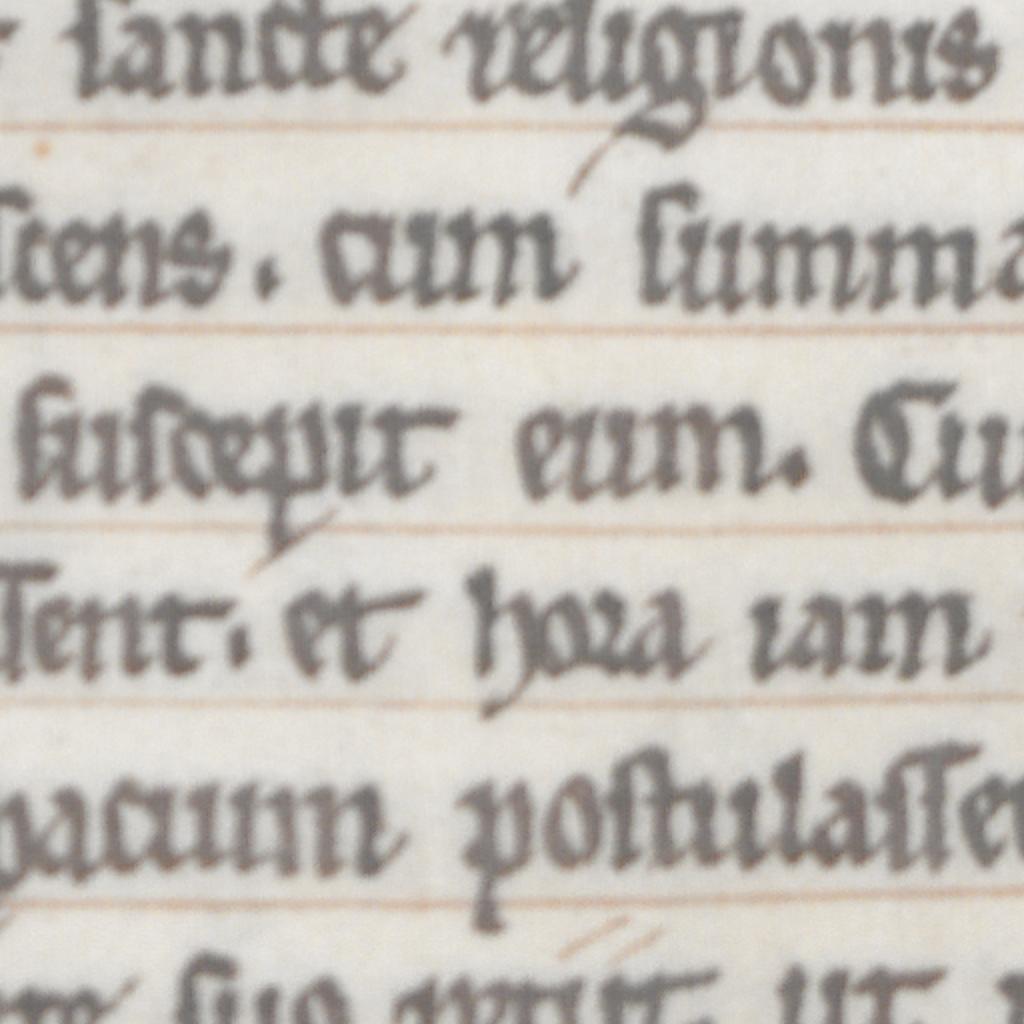 sancte religionis
scens. cum summa
suscepit eum. Cu
sent. et hora iam
pacium postulasse
suo petiit. ut